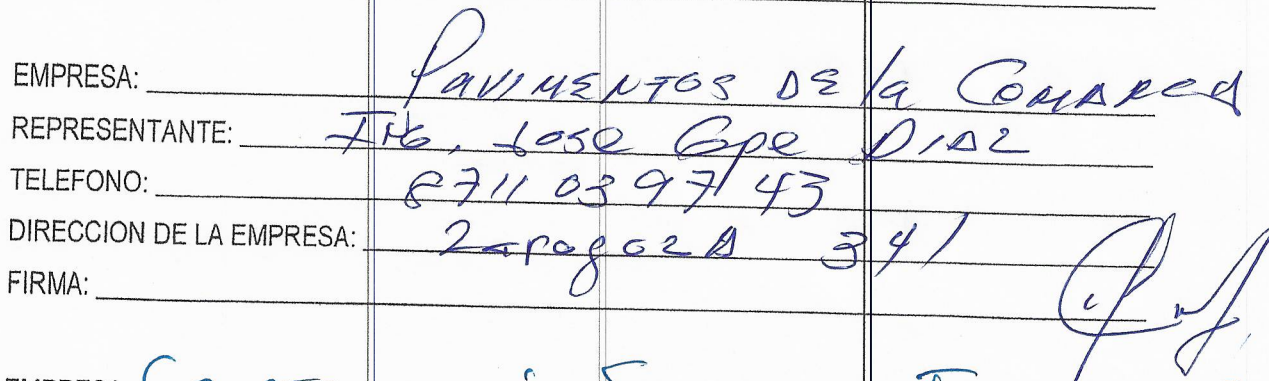 EMPRESA: PAVIMENTOS DE la COMARCA
REPRESENTANTE: ING. Jose Gpe DIAZ
TELEFONO: 8711 03 97 43
DIRECCION DE LA EMPRESA: Zaragoza 341
FIRMA: